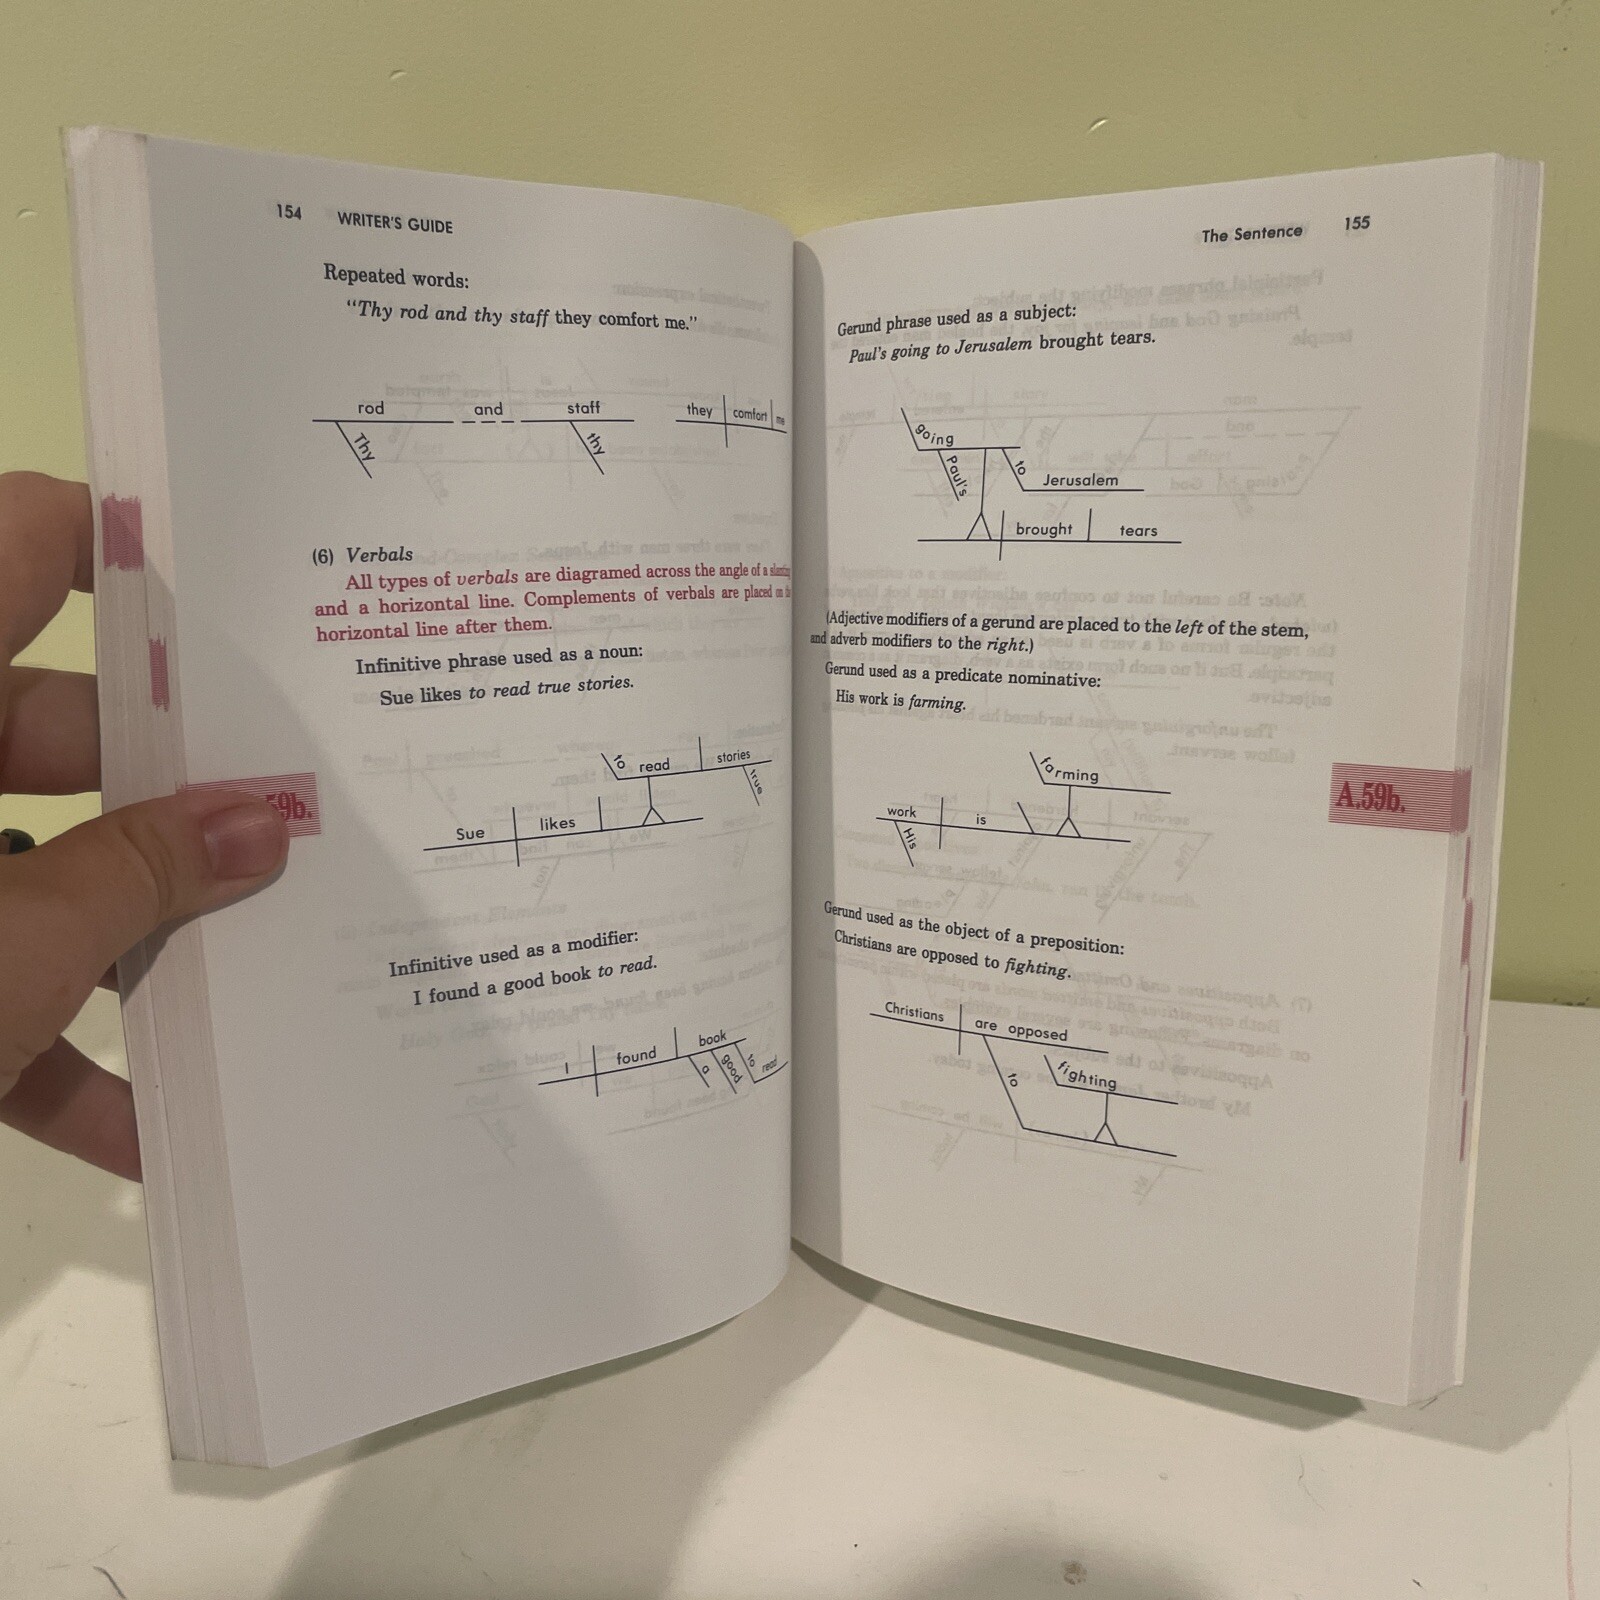 154 WRITER'S GUIDE
Repeated words:
"Thy rod and thy staff they comfort me."
rod and staff they comfort me
Thy thy
(6) Verbals
All types of verbals are diagramed across the angle of a slanting
and a horizontal line. Complements of verbals are placed on the
horizontal line after them.
Infinitive phrase used as a noun:
Sue likes to read true stories.
to read stories
true
Sue likes
59b.
Infinitive used as a modifier:
I found a good book to read.
I found book
a good to read
The Sentence 155
Gerund phrase used as a subject:
Paul's going to Jerusalem brought tears.
going
Paul's to Jerusalem
brought tears
(Adjective modifiers of a gerund are placed to the left of the stem,
and adverb modifiers to the right.)
Gerund used as a predicate nominative:
His work is farming.
farming
work is
His
A.59b.
Gerund used as the object of a preposition:
Christians are opposed to fighting.
Christians are opposed
to fighting